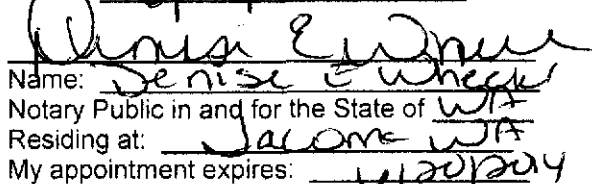 Denise E Wheeler
Name: Denise E Wheeler
Notary Public in and for the State of WA
Residing at: Tacoma WA
My appointment expires: